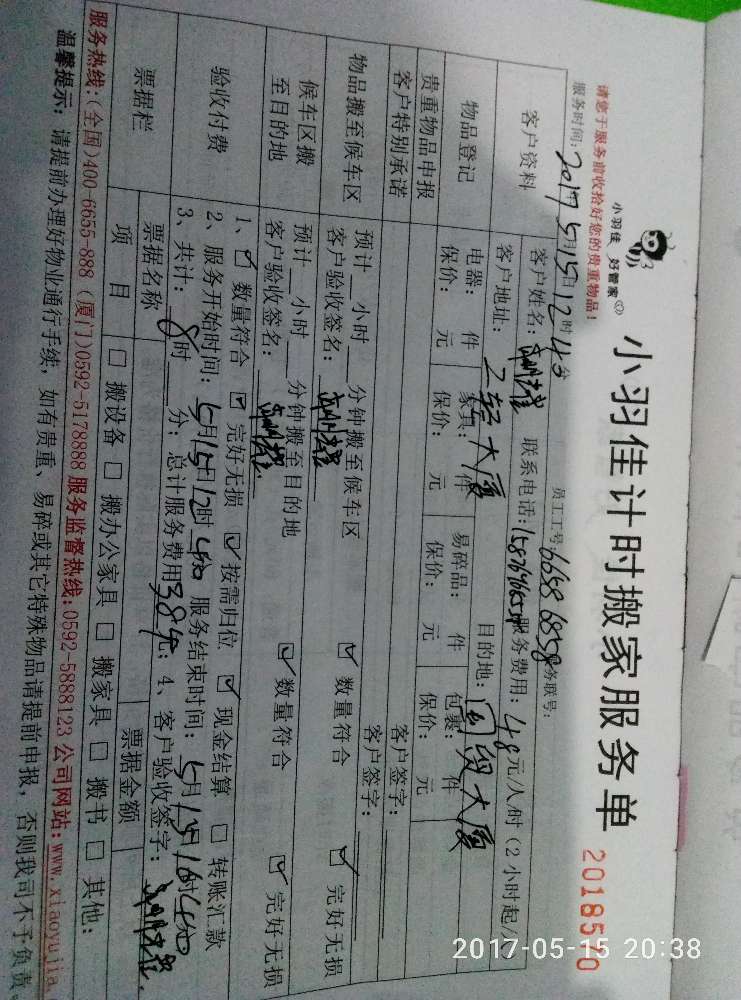 小羽佳 好管家
小羽佳计时搬家服务单
2018570
请您于服务前收拾好您的贵重物品！
员工工号: 6658 6858 务联号:
服务时间: 2017年5月15日12时40分
客户资料
客户姓名: 联系电话: 服务费用: 48元/人/时 (2小时起/人)
客户地址: 二轻大厦 目的地: 国贸大厦
物品登记
电器: 件 家具: 件 易碎品: 件 包裹: 件
保价: 元 保价: 元 保价: 元 保价: 元
贵重物品申报 客户签字:
客户特别承诺 客户签字:
物品搬至候车区
预计__小时__分钟搬至候车区 ☑ 数量符合 ☑ 完好无损
客户验收签名:
候车区搬至目的地
预计__小时__分钟搬至目的地 ☑ 数量符合 ☑ 完好无损
客户验收签名:
验收付费
1、☑ 数量符合 ☑ 完好无损 ☑ 按需归位 ☑ 现金结算 □ 转账汇款
2、服务开始时间: 5月15日12时40分 服务结束时间: 5月15日16时40分
3、共计: 8时 分; 总计服务费用384元; 4、客户验收签字:
票据栏
票据名称 票据金额
项 目 □ 搬设备 □ 搬办公家具 □ 搬家具 □ 搬书 □ 其他:
服务热线:(全国)400-6655-888 (厦门)0592-5178888 服务监督热线:0592-5888123 公司网站:www.xiaoyujia.
温馨提示: 请提前办理好物业通行手续, 如有贵重、易碎或其它特殊物品请提前申报, 否则我司不予负责。
2017-05-15 20:38